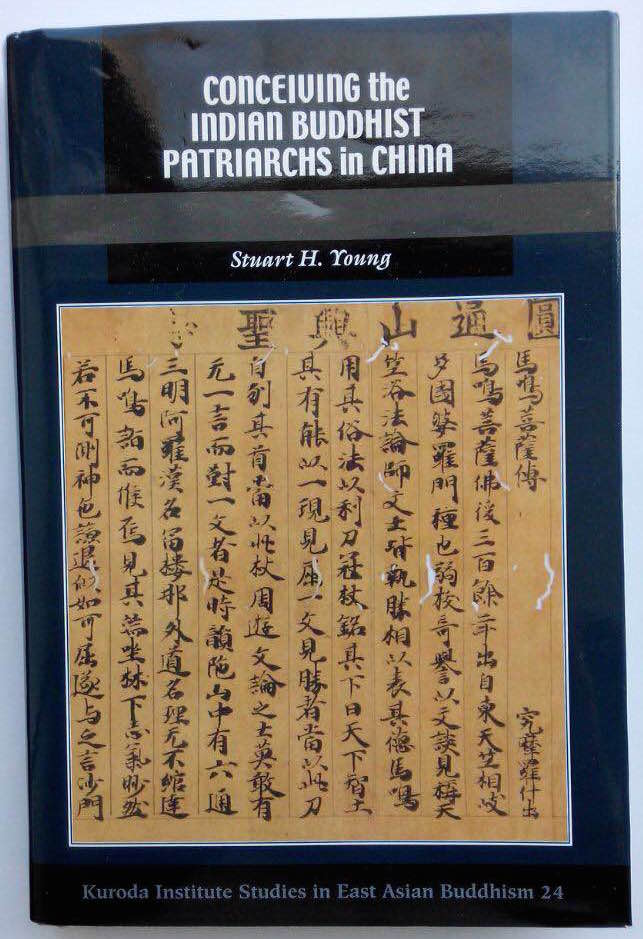 CONCEIVING the
INDIAN BUDDHIST
PATRIARCHS in CHINA
Stuart H. Young
圓通山興聖
馬鳴菩薩傳 究摩羅什出
馬鳴菩薩佛後三百餘年出自東天竺相岐
多國婆羅門種也弱挍奇譽以文談見稱天
竺俗法論師文士皆執勝相以表其德馬鳴
用其俗法以利刀冠杖銘其下曰天下智士
其有能以一現見屈一文見勝者當以此刀
自刎其首常以此杖周遊文論之士莫敢有
无一言而對一文者是時韻陁山中有六通
三明阿羅漢名富樓那外道名理无不綰達
馬鳴詣而候焉見其端坐林下志氣眇然
若不可測神色謙退似如可屈遂与之言沙門
Kuroda Institute Studies in East Asian Buddhism 24